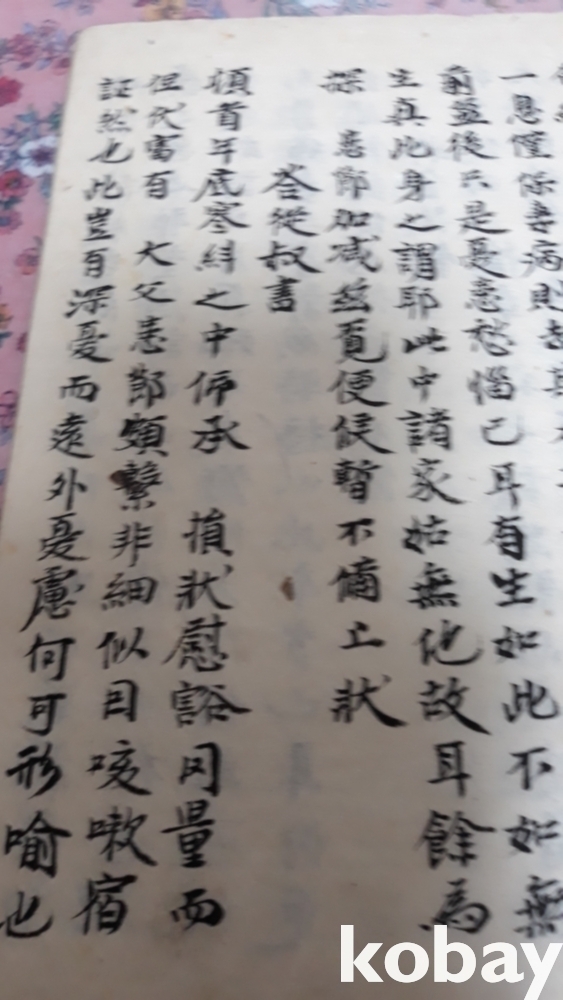 一息慬保妻病則去其
前益後只是憂患愁惱已耳有生如此不如無
生真此身之謂耶此中諸家姑無他故耳餘爲
探 患節加减玆覓便候暫不備上狀
答從叔書
頓首年底寒緯之中伻承 損狀慰豁罔量而
但代審有 大父患節頻繫非細似因咳嗽宿
証然也此豈有深憂而遠外憂慮何可形喻也
kobay